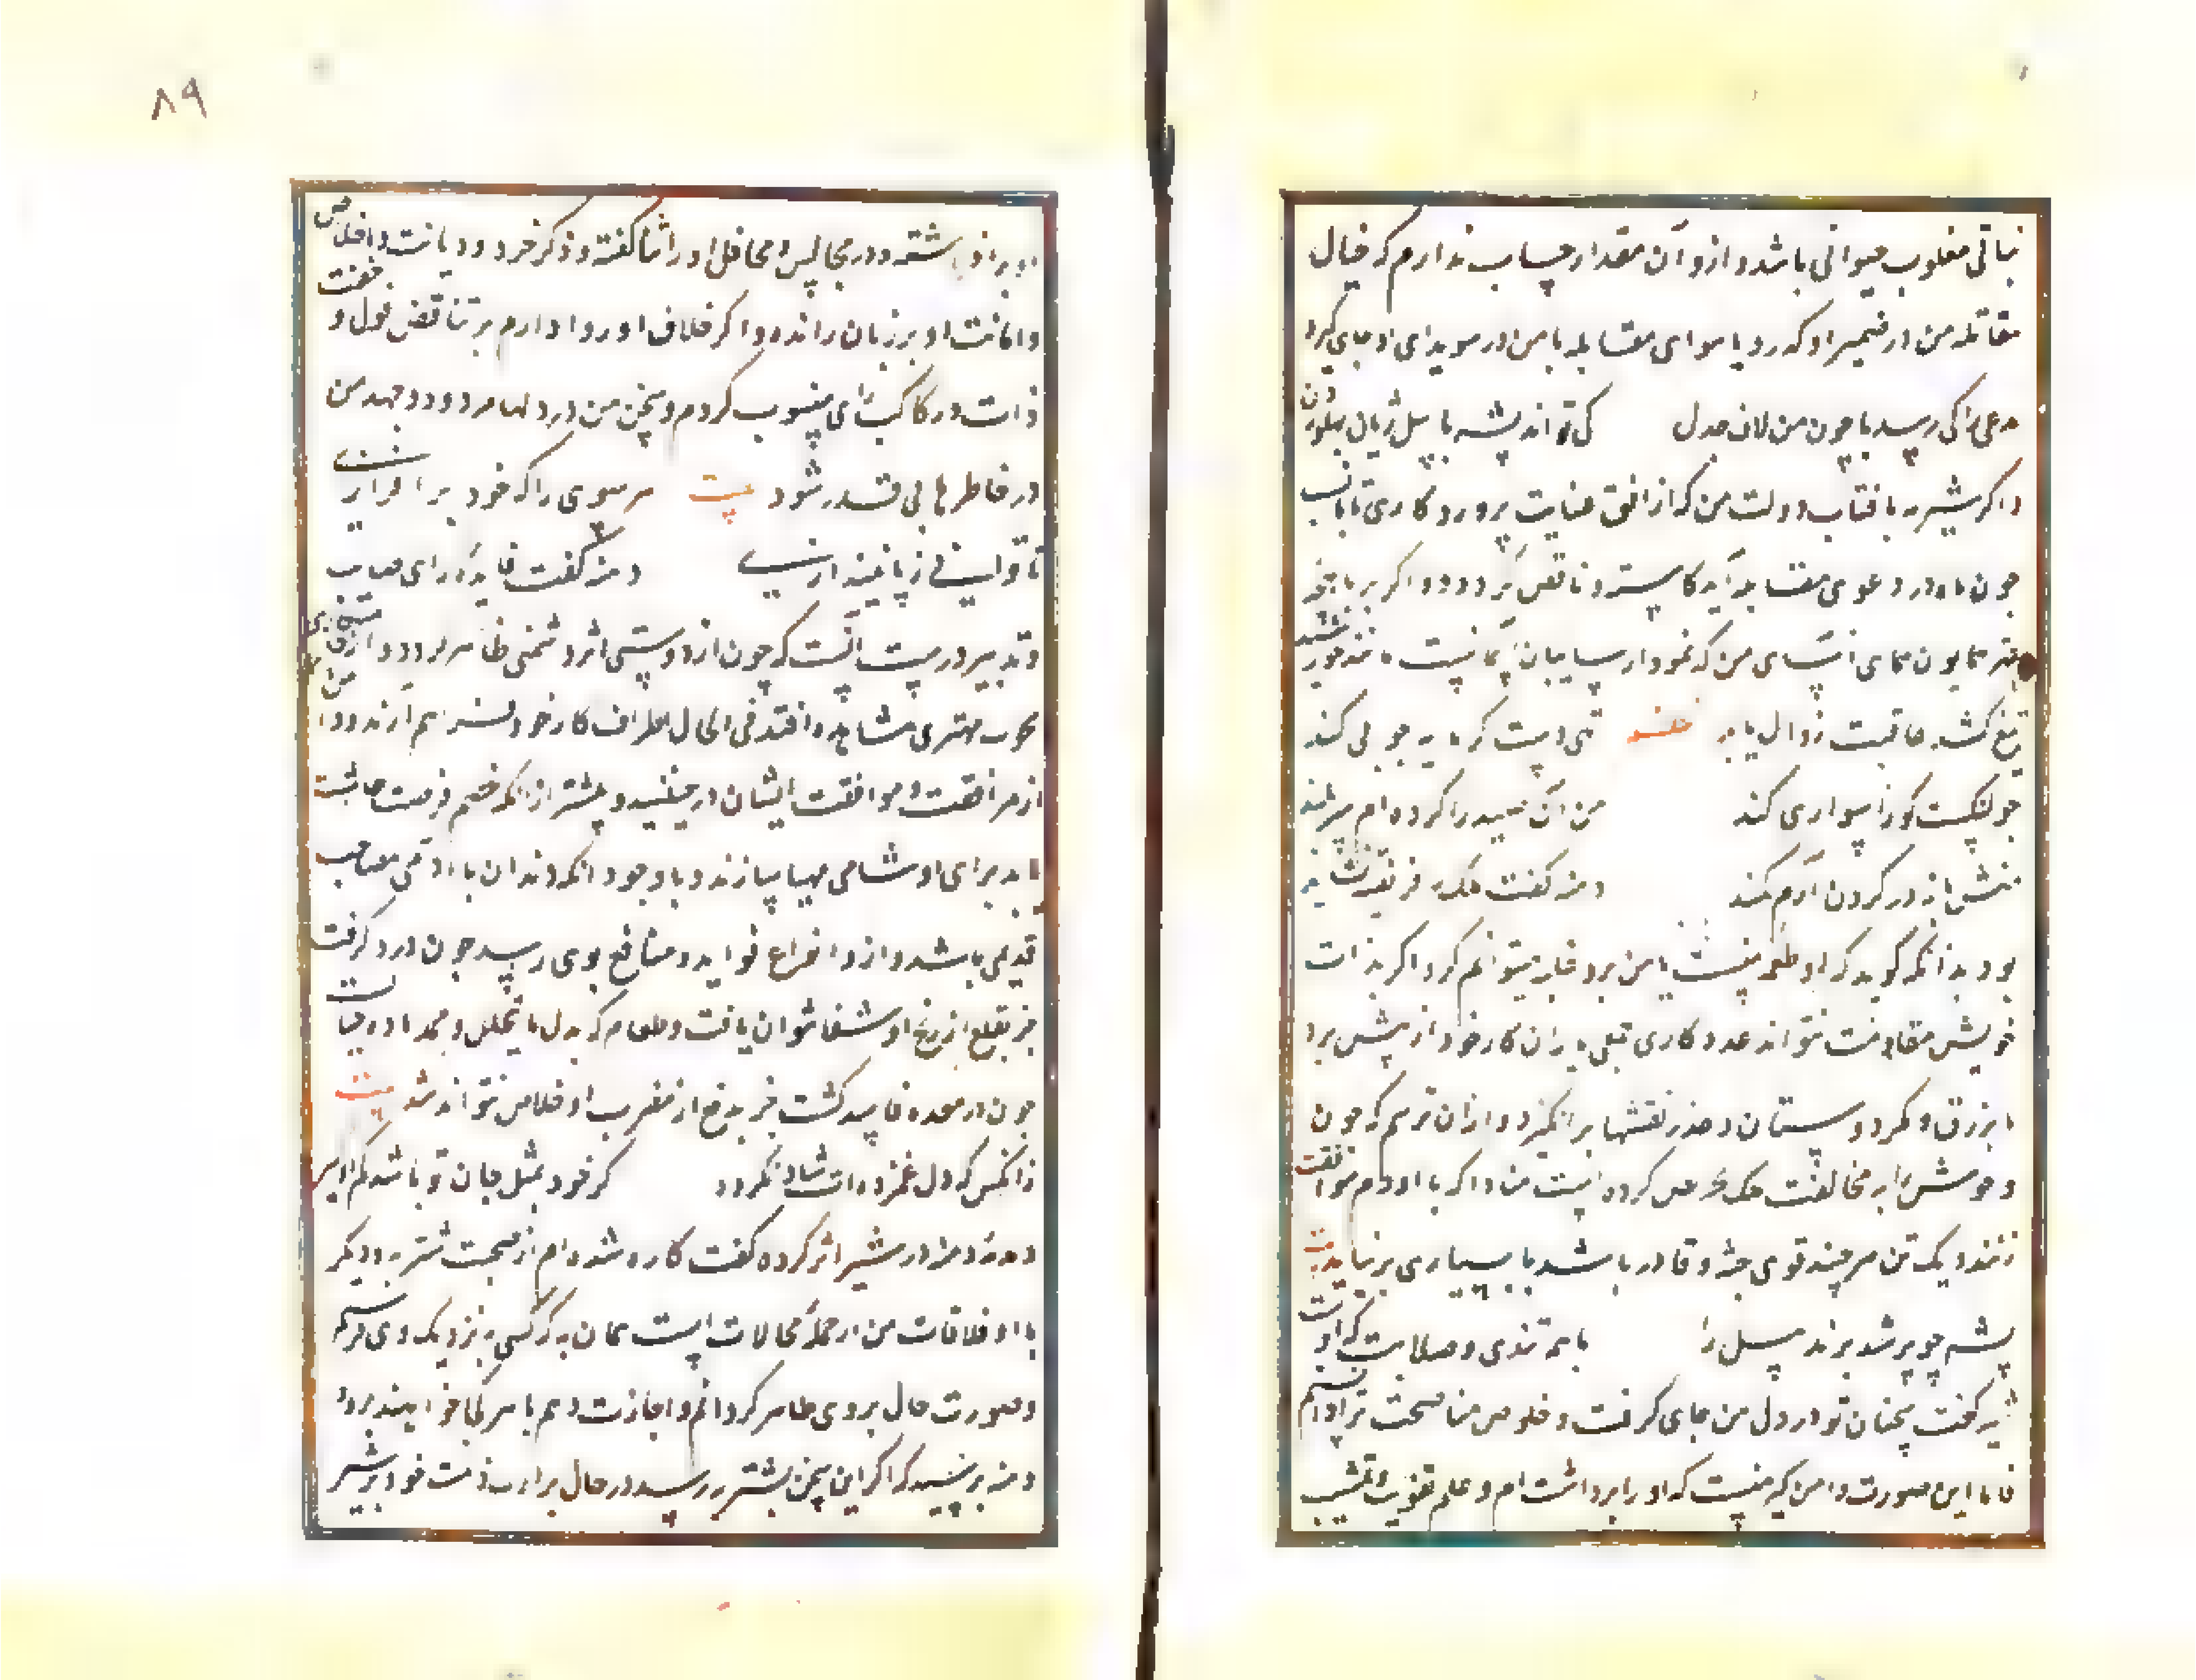 نباتی مغلوب حیوانی باشد و ازو آن مقدار حساب ندارم که خیال
مقاتله من در ضمیر او گذرد یا سوای مقابله با من در سویدای او جای گیرد
مدعی را کی رسد با چون من لاف جدل کی تواند پشه با پیل ژیان پهلو زدن
و اگر شنزبه با آفتاب دولت من که از افق عنایت پروردگاری تابانست
چون ماه در دعوی مقابله آید کاسته و ناقص گردد و اگر بر باز
چتر همایون همای آسای من که نمودار سایبان آسمانیست مانند خورشید
تیغ کشد عاقبت زوال یابد تهی دست کر مایه جویی کند
چو لنگیست کو راهواری کند من آن صید را کرده‌ام سربلند
منش باز در گردن آرم کمند دمنه گفت ملک فریفته نشاید
بود بدانکه گوید که او طعمه منست یا من برو غلبه میتوانم کرد اگر بذات
خویش مقاومت نتواند مددکاری قبلی یاران کار خود از پیش برد
یا بزرق و مکر و دستان و حذر نقشها برانگیزد و از آن ترسم که چون
وحوش را بر مخالفت ملک حریص کرده است مبادا که با او دم موافقت
زنند و یک تن هر چند قوی جثه و قادر باشد با بسیاری برنیاید بیت
پشه چو پر شد بزند پیل را با همه تندی و صلابت که اوست
شیر گفت سخنان تو در دل من جای گرفت و خلوص مناصحت ترا دانستم
فاما این صورت دامن گیر منست که او را برداشته‌ام و علم تقویت و تمشیت
۸۹
او برافراشته و در مجالس و محافل او را ثنا گفته و ذکر خرد و دیانت و اخلاص
و امانت او بر زبان رانده و اگر خلاف او روا دارم بر تناقض قول و خفت
ذات و رکاکت رای منسوب گردم و سخن من در دلها مردود و عهد من
در خاطرها بی قدر شود بیت هر سری را که خود برافرازی
تا توانی ز پا نیندازی دمنه گفت فایده رای صایب
و تدبیر درست آنست که چون از دوستی اثر دشمنی ظاهر گردد و از
مهتری مشاهده افتد فی الحال اطراف کار خود فراهم آرند و دامن
از مرافقت و موافقت ایشان در چینند و پیشتر از آنکه خصم فرصت چاشت
یابد برای او شامی مهیا سازند و با وجود آنکه دندان با آدمی مصاحب
قدیمی باشد و ازو انواع فواید و منافع بوی رسد چون درد گرفت
جز بقلع از رنج او شفا نتوان یافت و طعام که بدل ما یتحلل و ممد ماده حیاتست
چون در معده فاسد گشت جز بدفع از مضرت او خلاص نتواند شد بیت
زانکس که دل غمزده‌ات شاد نگردد گر خود بمثل جان تو باشد کم او گیر
دمدمه دمنه در شیر اثر کرده گفت کاره شده‌ام از صحبت شنزبه و دیگر
با او ملاقات من از جمله محالات است همان به که کسی بنزدیک وی فرستم
و صورت حال بر وی ظاهر گردانم و اجازت دهم تا هر کجا خواهد برود
دمنه بترسید که اگر این سخن بشنزبه رسد در حال براءت ذمت خود بر شیر